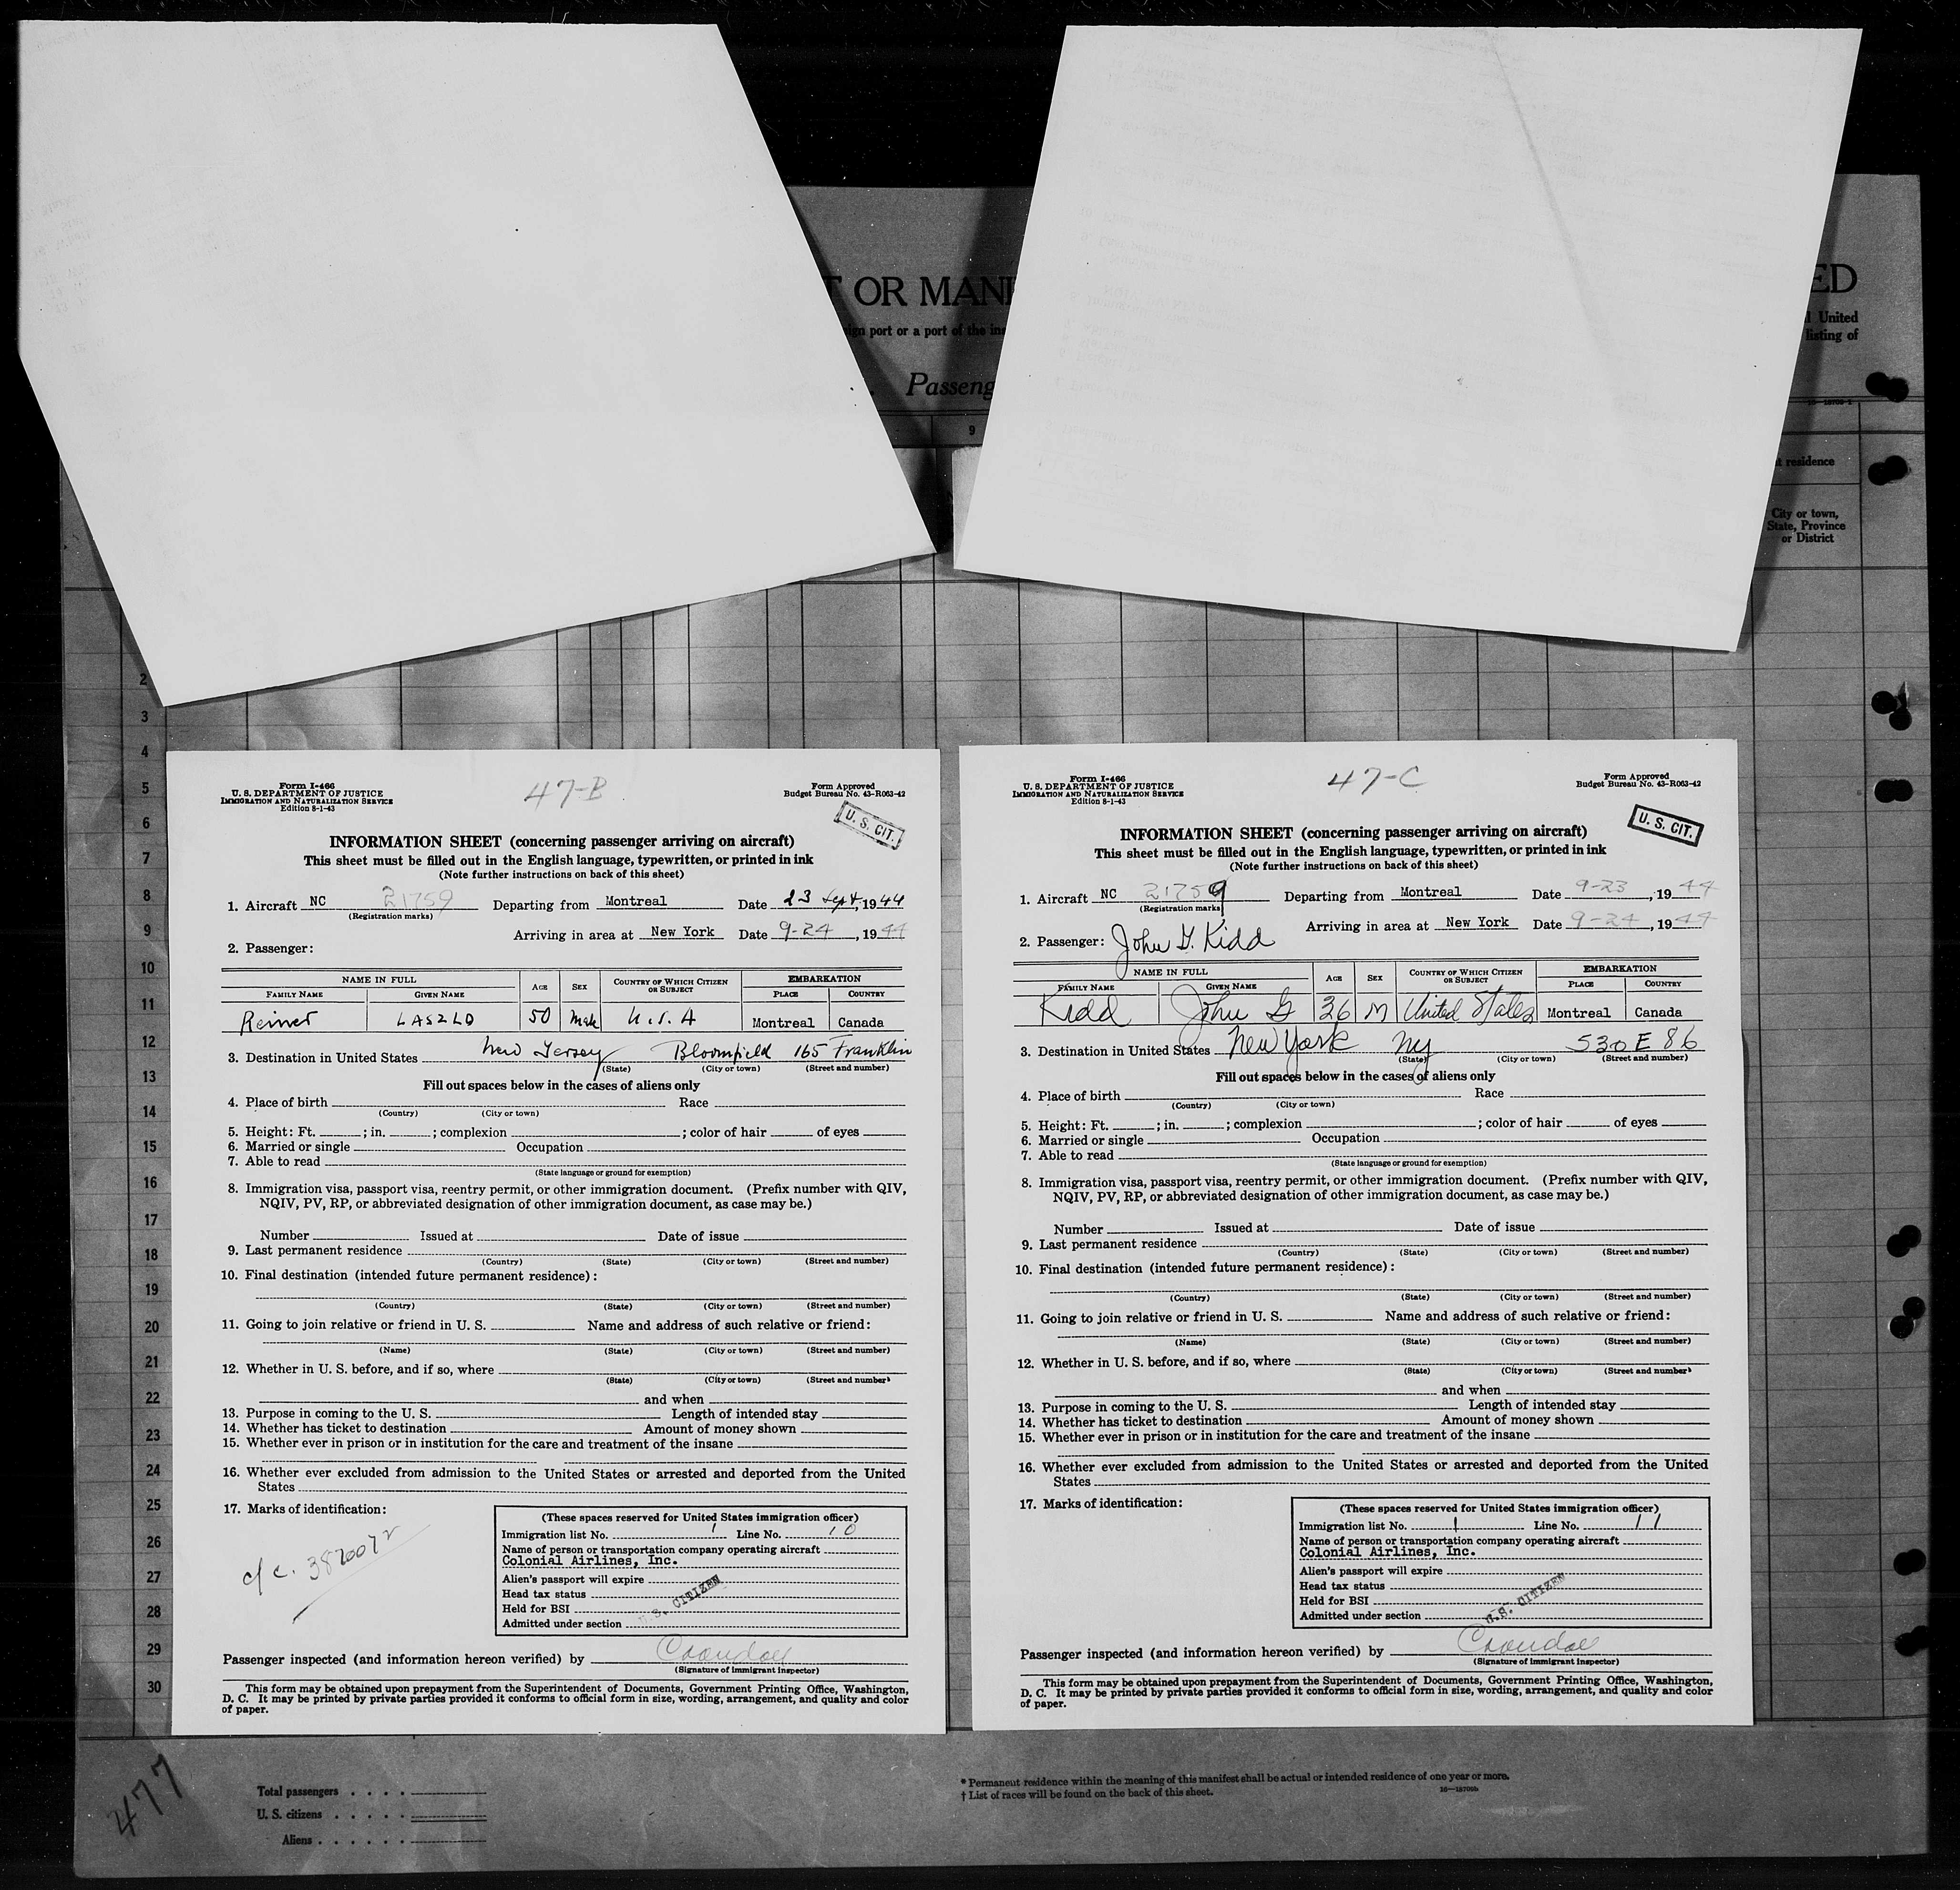 T OR MANI
ED
ign port or a port of the ins
l United
listing of
Passeng
9
t residence
City or town,
State, Province
or District
2
3
4
5
6
7
8
9
10
11
12
13
14
15
16
17
18
19
20
21
22
23
24
25
26
27
28
29
30
Form I-466
U. S. DEPARTMENT OF JUSTICE
IMMIGRATION AND NATURALIZATION SERVICE
Edition 8-1-43
47-B
Form Approved
Budget Bureau No. 43-R063-42
U. S. CIT.
INFORMATION SHEET (concerning passenger arriving on aircraft)
This sheet must be filled out in the English language, typewritten, or printed in ink
(Note further instructions on back of this sheet)
1. Aircraft NC 21759 Departing from Montreal Date 23 Sept, 1944
(Registration marks)
Arriving in area at New York Date 9-24, 1944
2. Passenger:
NAME IN FULL AGE SEX COUNTRY OF WHICH CITIZEN OR SUBJECT EMBARKATION
FAMILY NAME GIVEN NAME PLACE COUNTRY
Reiner LASZLO 50 Male U.S.A Montreal Canada
3. Destination in United States New Jersey Bloomfield 165 Franklin
(State) (City or town) (Street and number)
Fill out spaces below in the cases of aliens only
4. Place of birth Race
(Country) (City or town)
5. Height: Ft. ; in. ; complexion ; color of hair of eyes
6. Married or single Occupation
7. Able to read
(State language or ground for exemption)
8. Immigration visa, passport visa, reentry permit, or other immigration document. (Prefix number with QIV,
NQIV, PV, RP, or abbreviated designation of other immigration document, as case may be.)
Number Issued at Date of issue
9. Last permanent residence
(Country) (State) (City or town) (Street and number)
10. Final destination (intended future permanent residence):
(Country) (State) (City or town) (Street and number)
11. Going to join relative or friend in U. S. Name and address of such relative or friend:
(Name) (State) (City or town) (Street and number)
12. Whether in U. S. before, and if so, where
(State) (City or town) (Street and number)
and when
13. Purpose in coming to the U. S. Length of intended stay
14. Whether has ticket to destination Amount of money shown
15. Whether ever in prison or in institution for the care and treatment of the insane
16. Whether ever excluded from admission to the United States or arrested and deported from the United
States
17. Marks of identification:
c/c. 3870072
(These spaces reserved for United States immigration officer)
Immigration list No. 1 Line No. 10
Name of person or transportation company operating aircraft
Colonial Airlines, Inc.
Alien's passport will expire
Head tax status
Held for BSI
Admitted under section
U.S. CITIZEN
Passenger inspected (and information hereon verified) by Crandall
(Signature of immigrant inspector)
This form may be obtained upon prepayment from the Superintendent of Documents, Government Printing Office, Washington,
D. C. It may be printed by private parties provided it conforms to official form in size, wording, arrangement, and quality and color
of paper.
Form I-466
U. S. DEPARTMENT OF JUSTICE
IMMIGRATION AND NATURALIZATION SERVICE
Edition 8-1-43
47-C
Form Approved
Budget Bureau No. 43-R063-42
U. S. CIT.
INFORMATION SHEET (concerning passenger arriving on aircraft)
This sheet must be filled out in the English language, typewritten, or printed in ink
(Note further instructions on back of this sheet)
1. Aircraft NC 21759 Departing from Montreal Date 9-23, 1944
(Registration marks)
Arriving in area at New York Date 9-24, 1944
2. Passenger: John G. Kidd
NAME IN FULL AGE SEX COUNTRY OF WHICH CITIZEN OR SUBJECT EMBARKATION
FAMILY NAME GIVEN NAME PLACE COUNTRY
Kidd John G 36 M United States Montreal Canada
3. Destination in United States New York Ny 530 E 86
(State) (City or town) (Street and number)
Fill out spaces below in the cases of aliens only
4. Place of birth Race
(Country) (City or town)
5. Height: Ft. ; in. ; complexion ; color of hair of eyes
6. Married or single Occupation
7. Able to read
(State language or ground for exemption)
8. Immigration visa, passport visa, reentry permit, or other immigration document. (Prefix number with QIV,
NQIV, PV, RP, or abbreviated designation of other immigration document, as case may be.)
Number Issued at Date of issue
9. Last permanent residence
(Country) (State) (City or town) (Street and number)
10. Final destination (intended future permanent residence):
(Country) (State) (City or town) (Street and number)
11. Going to join relative or friend in U. S. Name and address of such relative or friend:
(Name) (State) (City or town) (Street and number)
12. Whether in U. S. before, and if so, where
(State) (City or town) (Street and number)
and when
13. Purpose in coming to the U. S. Length of intended stay
14. Whether has ticket to destination Amount of money shown
15. Whether ever in prison or in institution for the care and treatment of the insane
16. Whether ever excluded from admission to the United States or arrested and deported from the United
States
17. Marks of identification:
(These spaces reserved for United States immigration officer)
Immigration list No. 1 Line No. 11
Name of person or transportation company operating aircraft
Colonial Airlines, Inc.
Alien's passport will expire
Head tax status
Held for BSI
Admitted under section
U.S. CITIZEN
Passenger inspected (and information hereon verified) by Crandall
(Signature of immigrant inspector)
This form may be obtained upon prepayment from the Superintendent of Documents, Government Printing Office, Washington,
D. C. It may be printed by private parties provided it conforms to official form in size, wording, arrangement, and quality and color
of paper.
477
Total passengers . . . .
U. S. citizens . . . . .
Aliens . . . . . .
* Permanent residence within the meaning of this manifest shall be actual or intended residence of one year or more.
† List of races will be found on the back of this sheet.